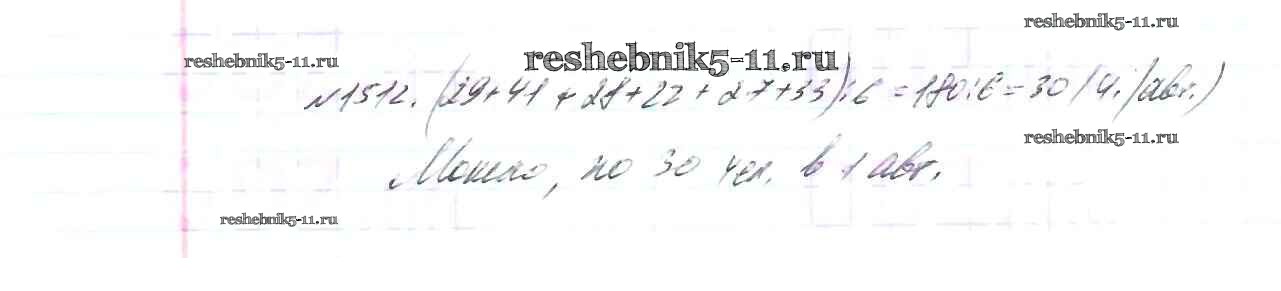 reshebnik5-11.ru
reshebnik5-11.ru
reshebnik5-11.ru
№1512. (29+41+28+22+27+33):6=180:6=30 (ч./авт.)
reshebnik5-11.ru
Можно, по 30 чел. в 1 авт.
reshebnik5-11.ru